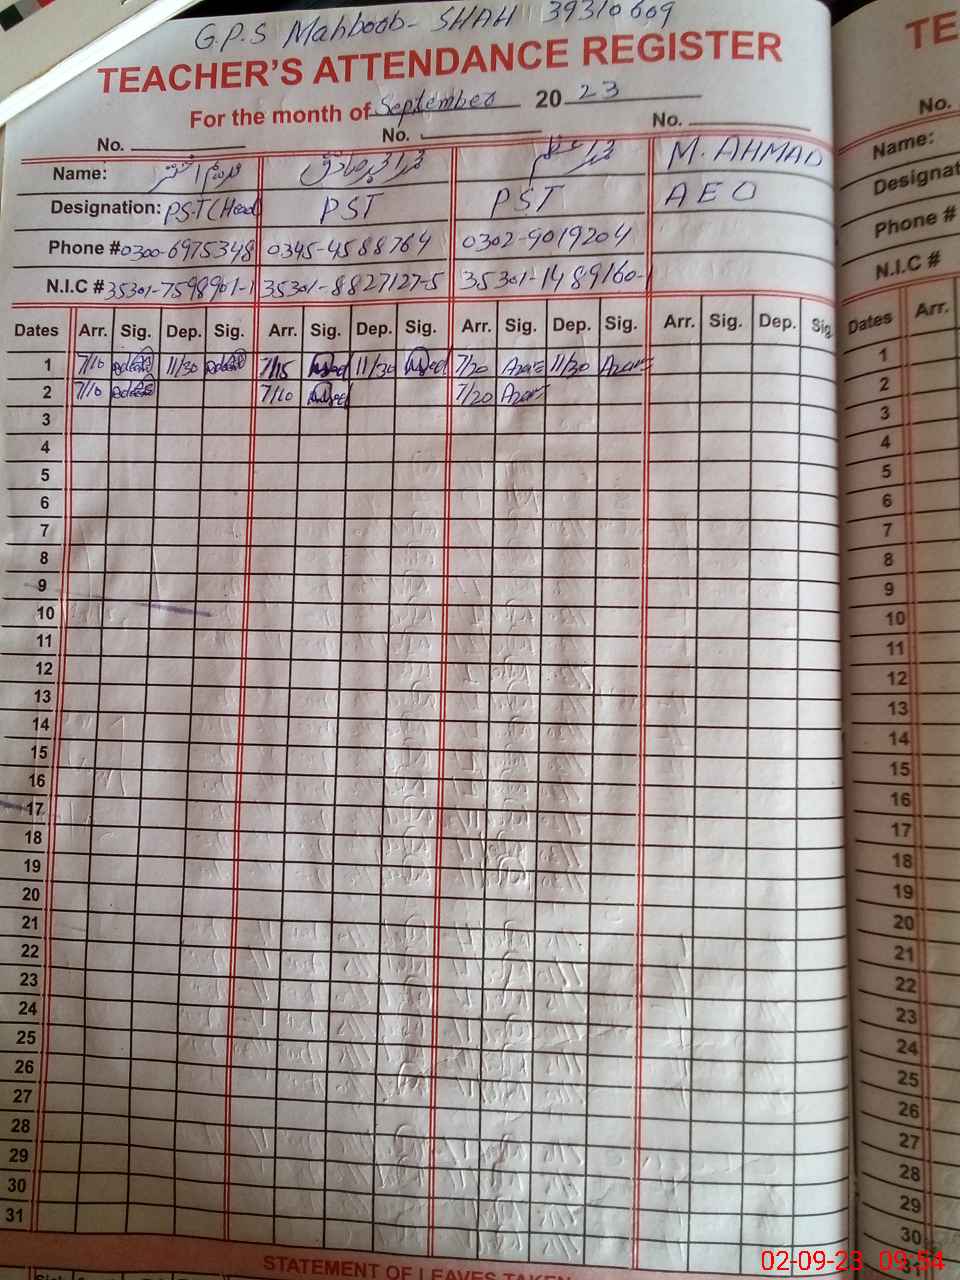 G.P.S Mahboob-SHAH 39310609
TEACHER'S ATTENDANCE REGISTER
For the month of September 20 23
No. No. No.
Name: M. AHMAD
Designation: PST (Head PST PST AEO
Phone # 0300-6975348 0345-4588764 0302-9019204
N.I.C # 35301-7598961-1 35301-8827127-5 35301-1489160-1
Dates Arr. Sig. Dep. Sig. Arr. Sig. Dep. Sig. Arr. Sig. Dep. Sig. Arr. Sig. Dep. Sig.
1 7/10 11/30 7/15 11/30 7/20 11/30
2 7/10 7/10 7/20
3
4
5
6
7
8
9
10
11
12
13
14
15
16
17
18
19
20
21
22
23
24
25
26
27
28
29
30
31
STATEMENT OF LEAVES TAKEN
TE
No.
Name:
Designat
Phone #
N.I.C #
Dates Arr.
1
2
3
4
5
6
7
8
9
10
11
12
13
14
15
16
17
18
19
20
21
22
23
24
25
26
27
28
29
30
02-09-23 09:54